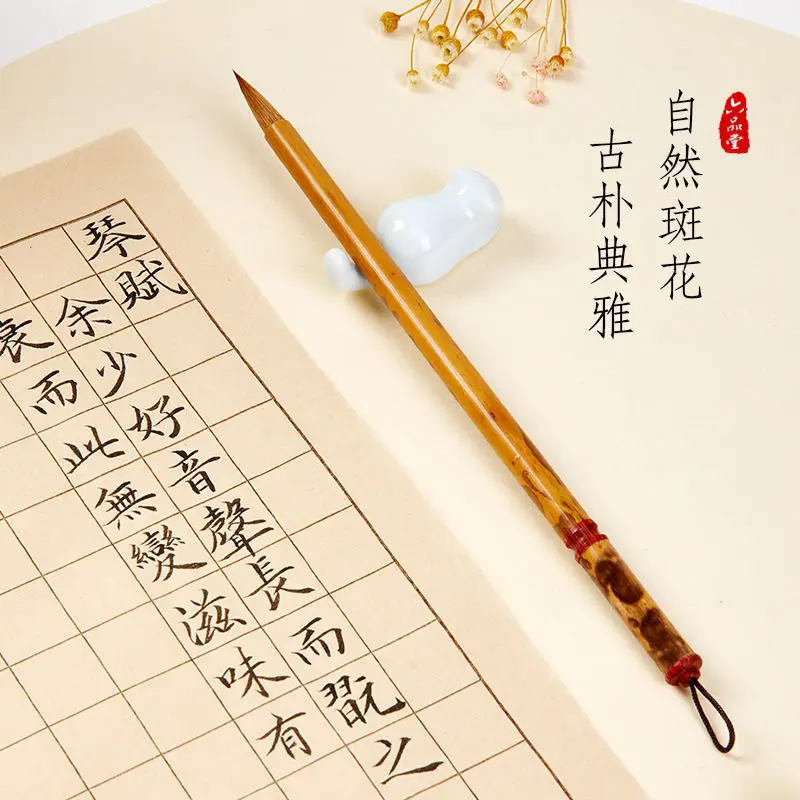 六品堂
自然斑花
古朴典雅
琴賦
余少好音聲長而翫之
衰而此無變滋味有